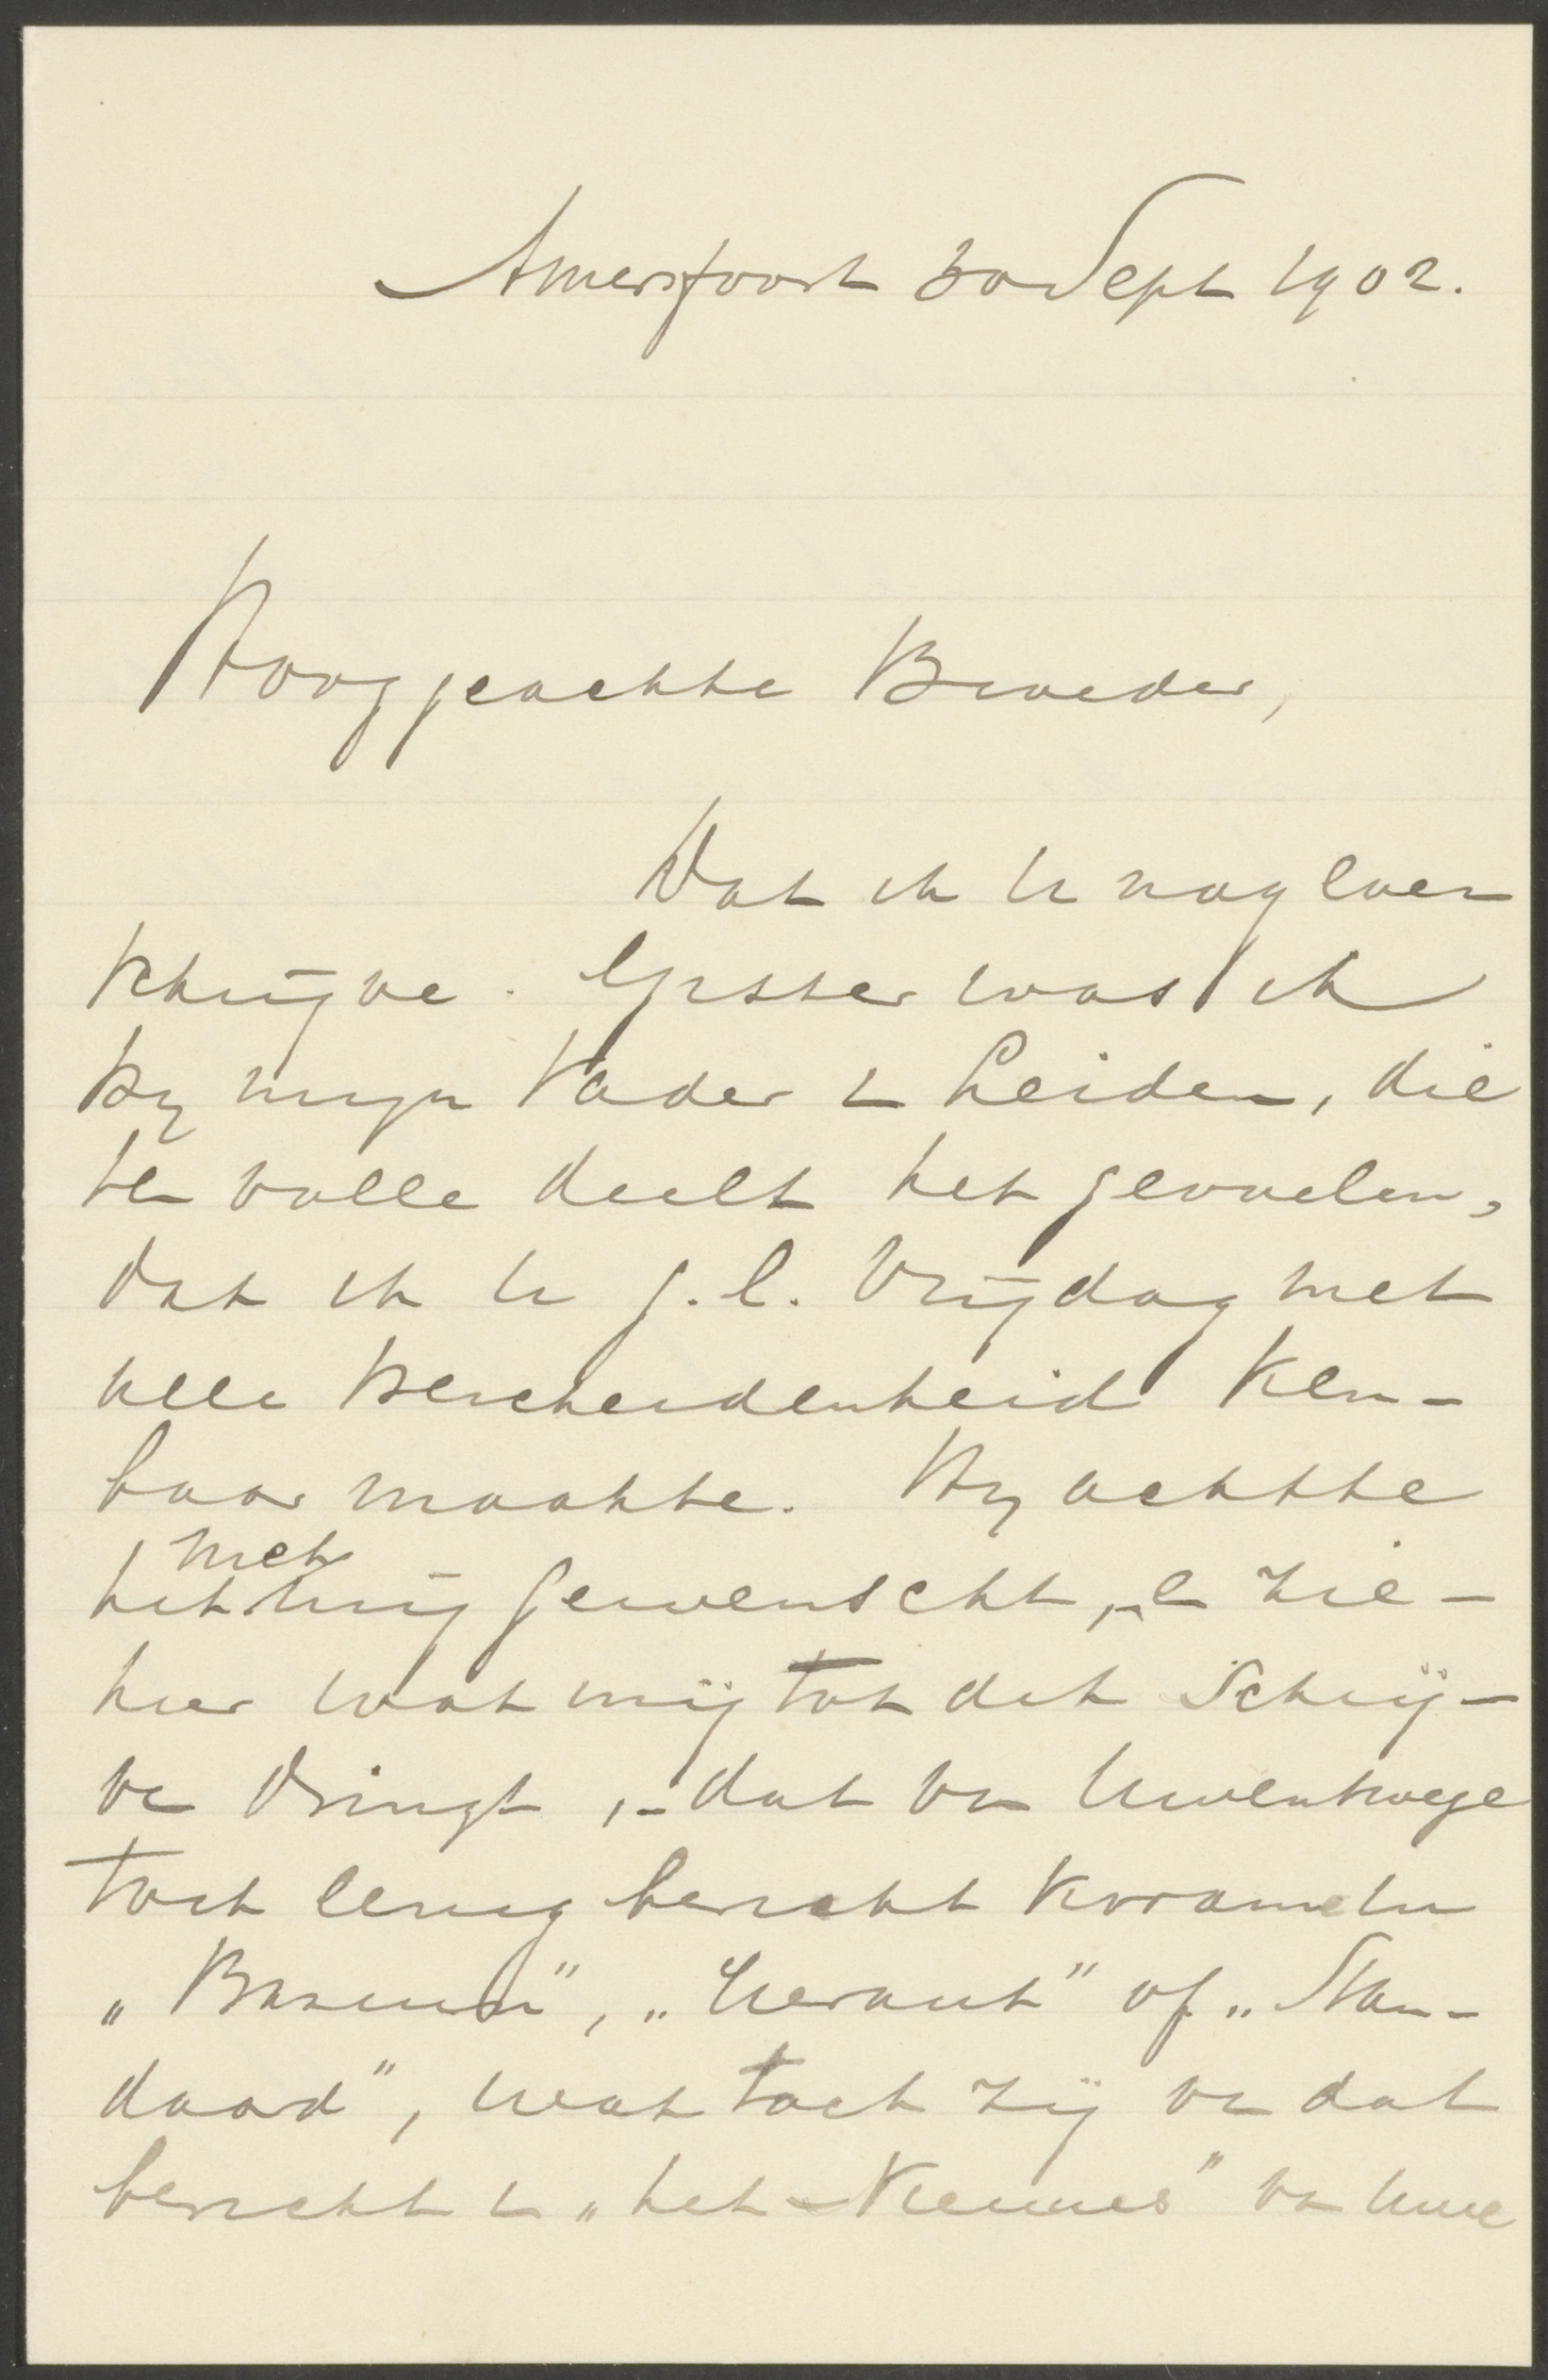 Amersfoort 30 Sept 1902.
Hooggeachte Broeder,
Dat ik U nog even
schrijve. Gister was ik
by mijn Vader te Leiden, die
ten volle deelt het gevoelen,
dat ik U j.l. Vrijdag met
alle bescheidenheid ken-
baar maakte. Hy achtte
het met mij gewenscht, - en zie-
hier wat mij tot dit schrij-
ven dringt, - dat van Uwentwege
toch eenig bericht kwame in
„Bazuin", „Heraut" of „Stan-
daard", wat toch zij van dat
bericht in „het Nieuws" van Uwe